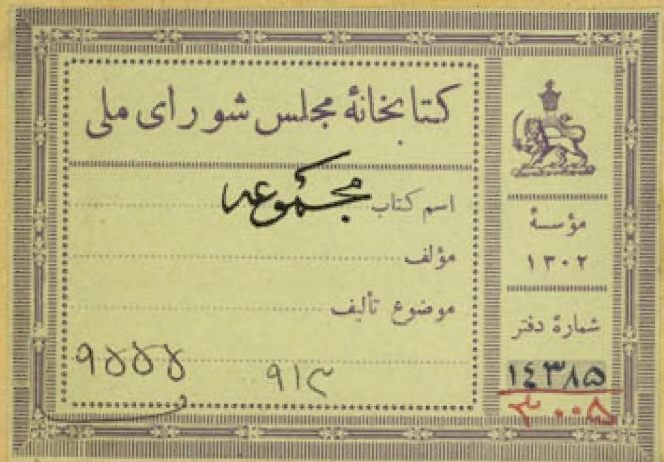 کتابخانهٔ مجلس شورای ملی
اسم کتاب مجموعه
مؤلف
موضوع تألیف
۹۱۳
مؤسسهٔ
۱۳۰۲
شمارهٔ دفتر
۱۴۳۸۵
۳۰۰۵